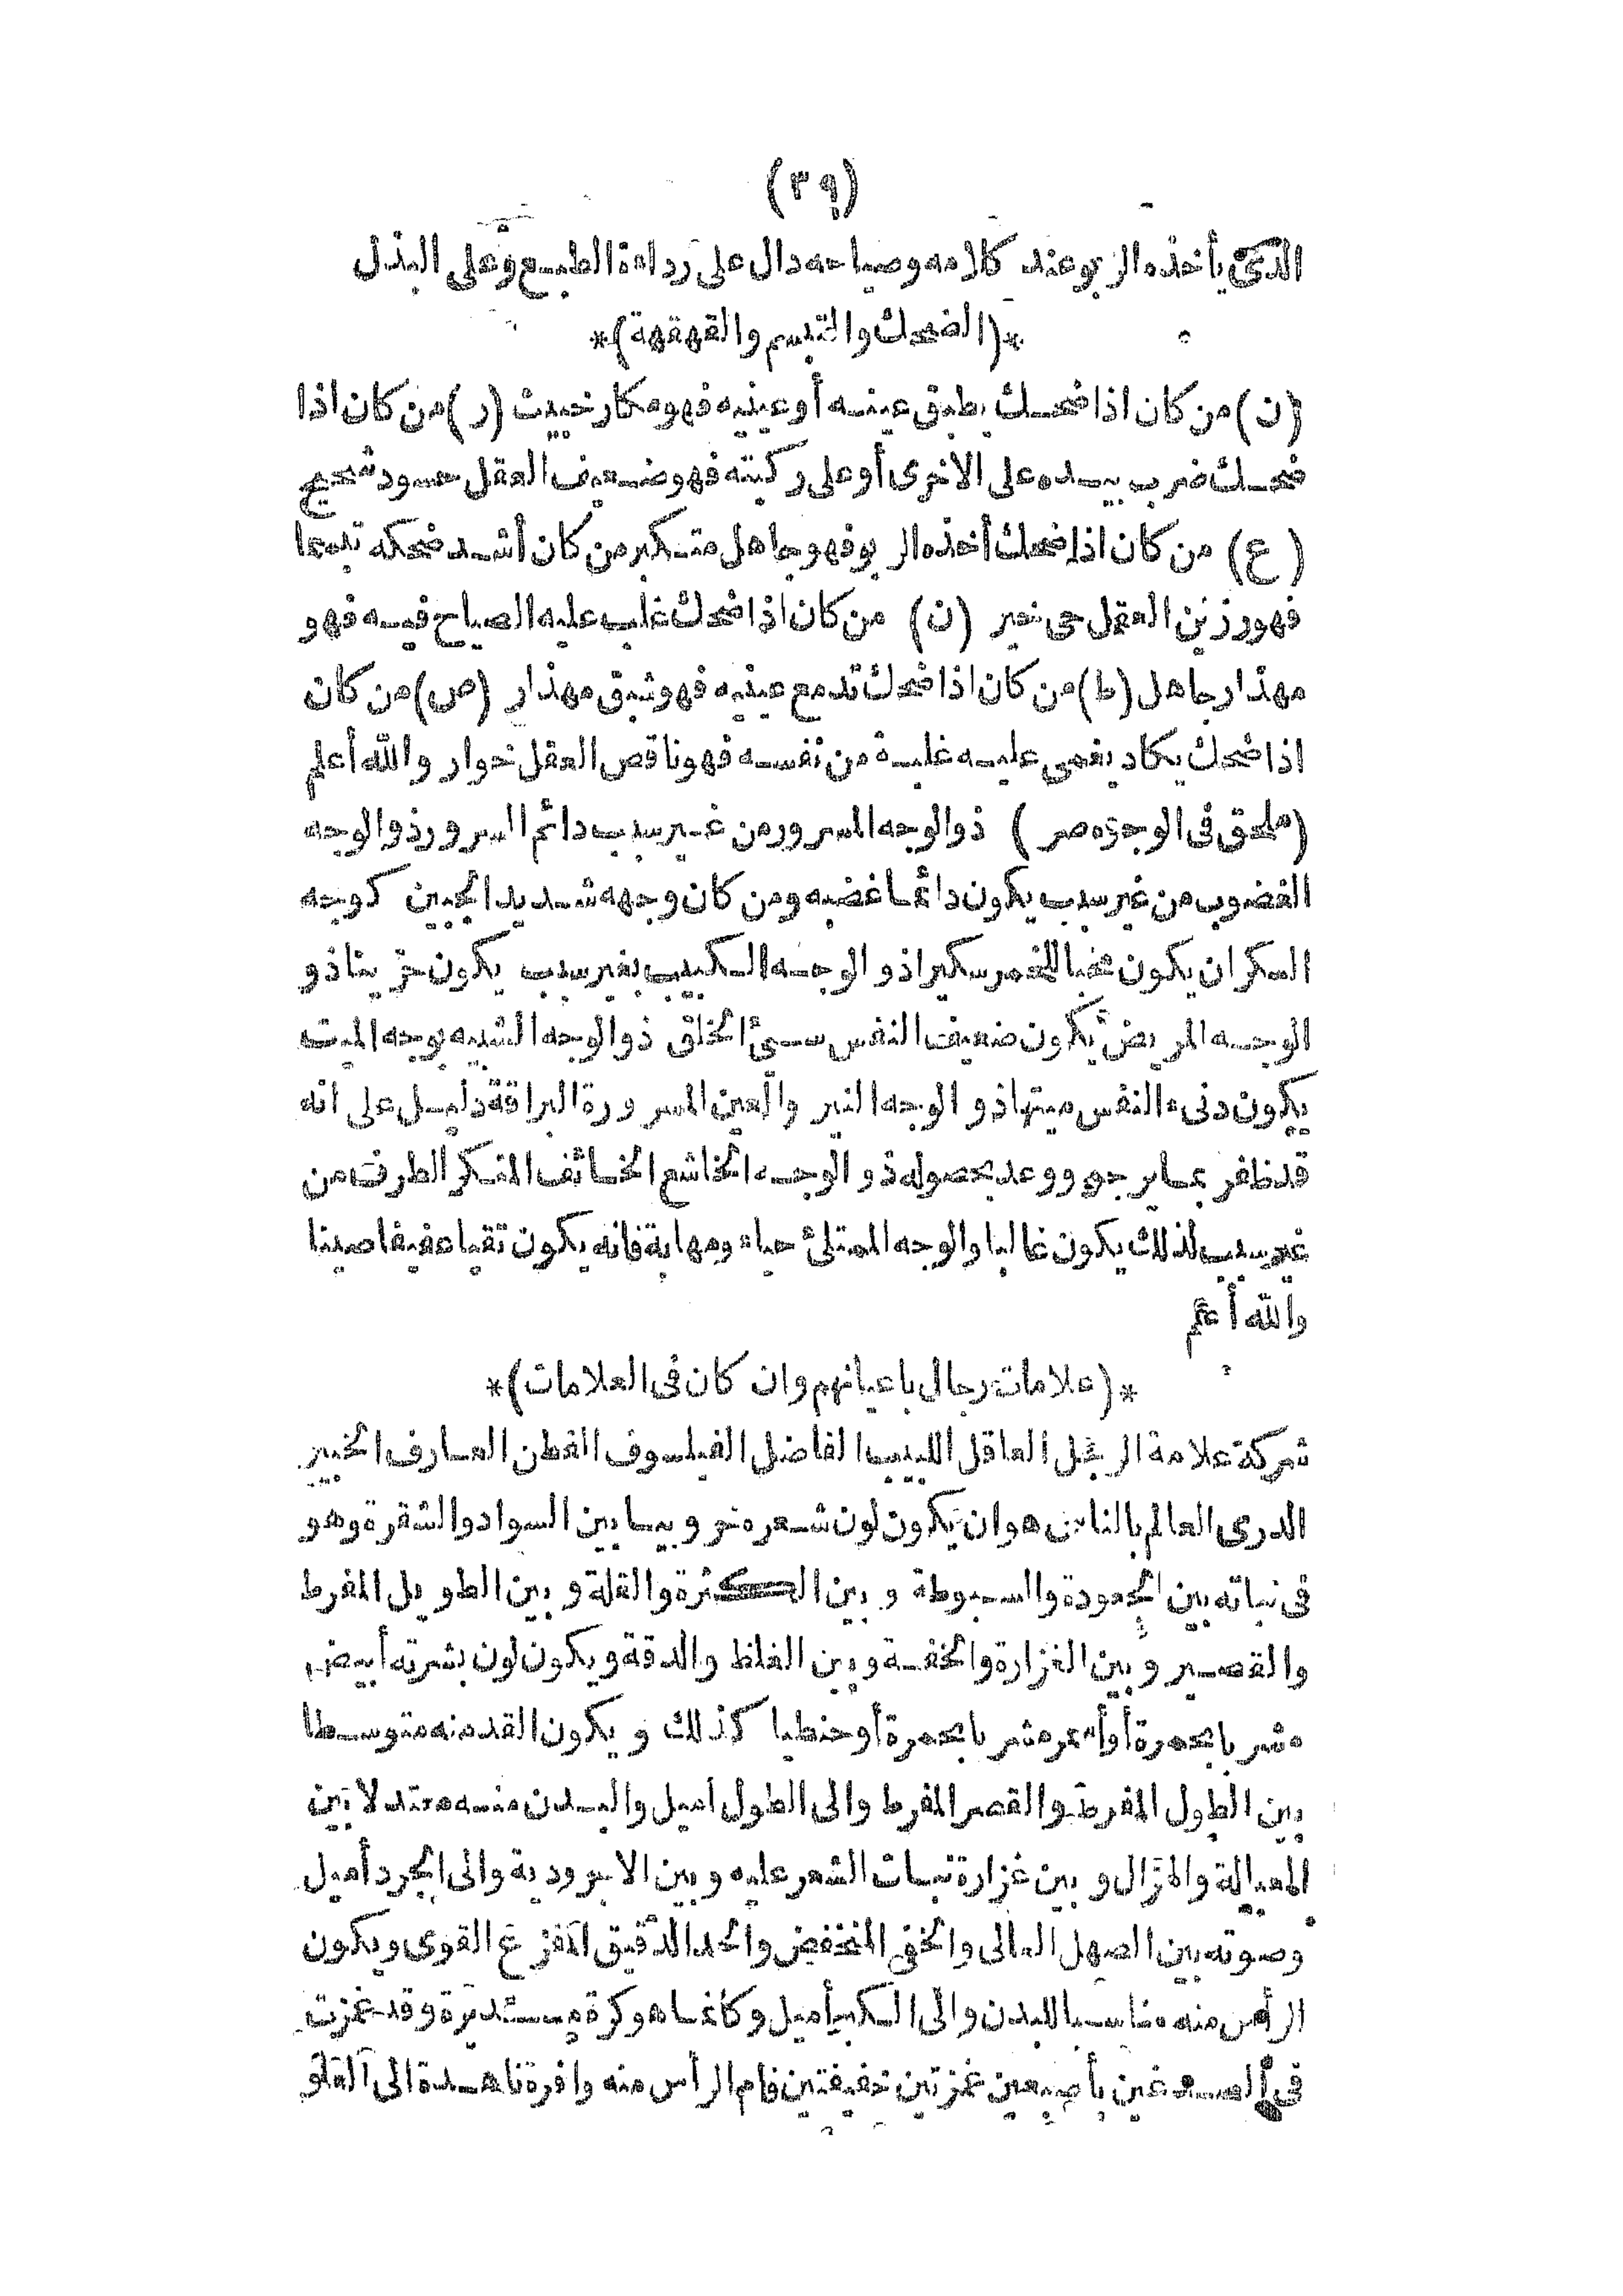 (٣٩)
الذى يأخذه الربو عند كلامه وصياحه دال على رداءة الطبع وعلى البذل
*(الضحك والتبسم والقهقهة)*
(ن) من كان اذا ضحك يطبق عينه أو عينيه فهو مكار خبيث (ر) من كان اذا
ضحك ضرب بيده على الاخرى أو على ركبته فهو ضعيف العقل حسود شحيح
(ع) من كان اذا ضحك أخذه الربو فهو جاهل متكبر من كان أشد ضحكه تبسما
فهو رزين العقل حى خير (ن) من كان اذا ضحك غلب عليه الصياح فيه فهو
مهذار جاهل (ط) من كان اذا ضحك تدمع عينيه فهو شبق مهذار (ص) من كان
اذا ضحك يكاد يغمى عليه غلبة من نفسه فهو ناقص العقل خوار والله أعلم
(ملحق فى الوجوه مصر) ذو الوجه المسرور من غير سبب دائم السرور ذو الوجه
الغضوب من غير سبب يكون دائما غضبه ومن كان وجهه شديد الجبين كوجه
السكران يكون محبا للخمر سكيرا ذو الوجه الكئيب بغير سبب يكون حزينا ذو
الوجه المريض يكون ضعيف النفس سيئ الخلق ذو الوجه الشبيه بوجه الميت
يكون دنىء النفس ميتها ذو الوجه النير والعين المسرورة البراقة دليل على أنه
قد ظفر بما يرجو ووعد بحصوله ذو الوجه الخاشع الخائف المنكر الطرف من
غير سبب لذلك يكون غالبا والوجه الممتلئ حياء ومهابة فانه يكون تقيا عفيفا صينا
والله أعلم
*(علامات رجال باعيانهم وان كان فى العلامات)*
شركة علامة الرجل العاقل اللبيب الفاضل الفيلسوف الفطن العارف الخبير
الدرى العالم بالناس هو ان يكون لون شعره خروبيا بين السواد والشقرة وهو
فى نباته بين الجعودة والسبوطة وبين الكثرة والقلة وبين الطويل المفرط
والقصير وبين الغزارة والخفة وبين الغلظ والدقة ويكون لون بشرته أبيض
مشربا بحمرة أو أسمر مشربا بحمرة أو حنطيا كذلك ويكون القد منه متوسطا
بين الطول المفرط والقصر المفرط والى الطول أميل والبدن منه معتدلا بين
العبالة والهزال وبين غزارة نبات الشعر عليه وبين الامرودية والى الجرد أميل
وصوته بين الصهل العالى والخفى المنخفض والحد الدقيق المفزع القوى ويكون
الرأس منه مناسبا للبدن والى الكبر أميل وكأنما هو كرة مستديرة وقد غمزت
فى الصدغين بأصبعين غمزتين خفيفتين فام الرأس منه وافرة ناهدة الى العلو